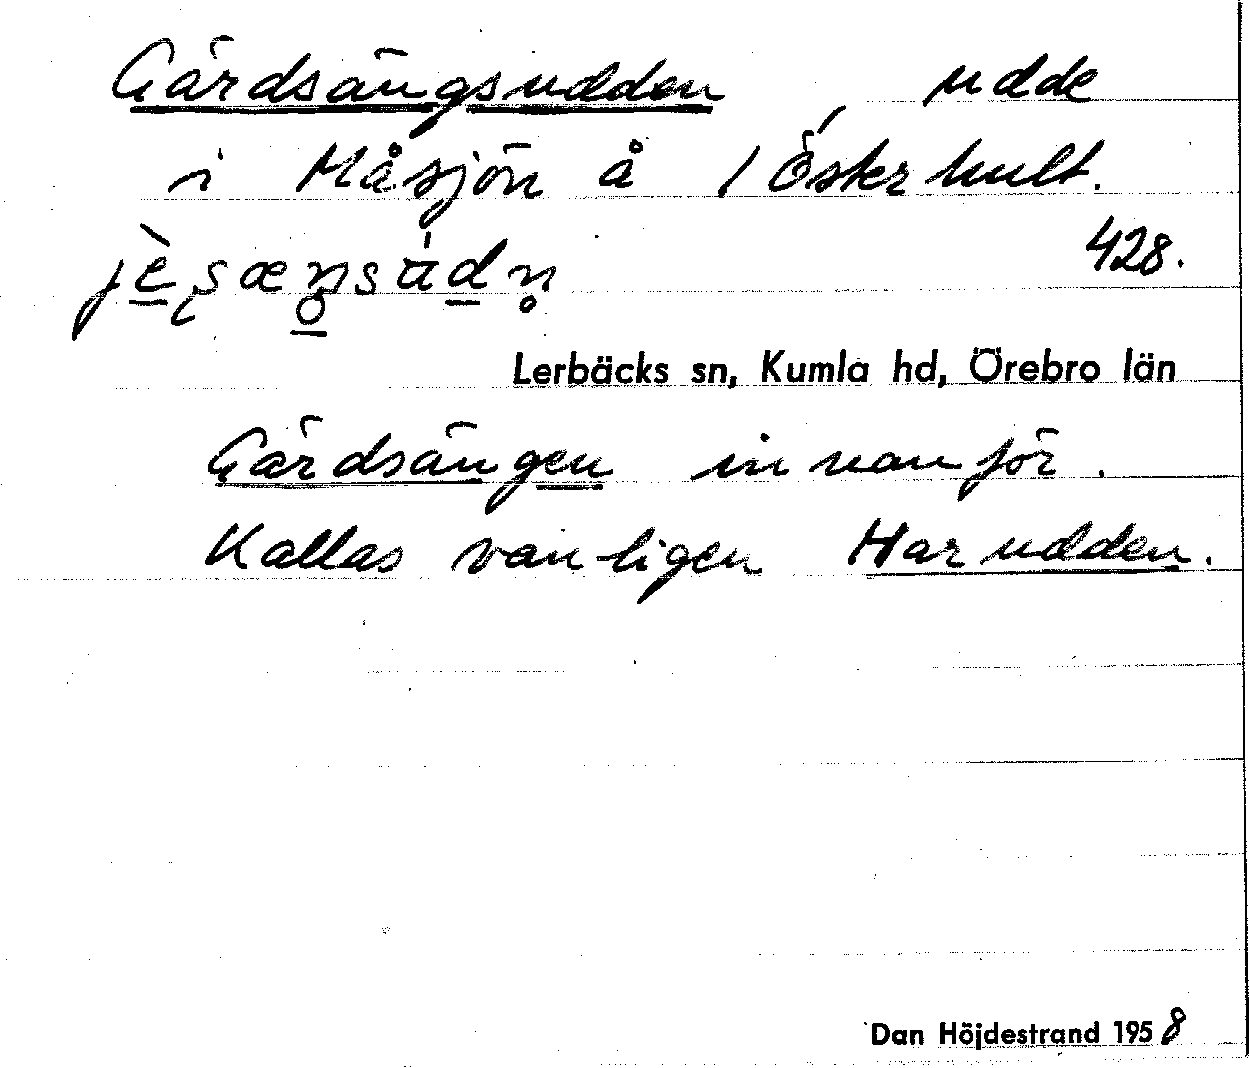 Gärdsängsudden, udde
i Måsjön å 1 Österhult.
428.
Lerbäcks sn, Kumla hd, Örebro län
Gärdsängen innanför.
Kallas vanligen Harudden.
Dan Höjdestrand 1958